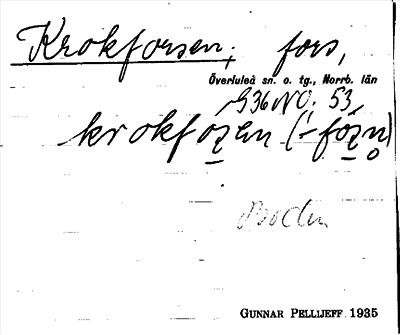 Krokforsen, fors,
Överluleå sn. o. tg., Norrb. län
G36NO. 53,
krokfozen (-fózn)
Boden
GUNNAR PELLIJEFF 1935